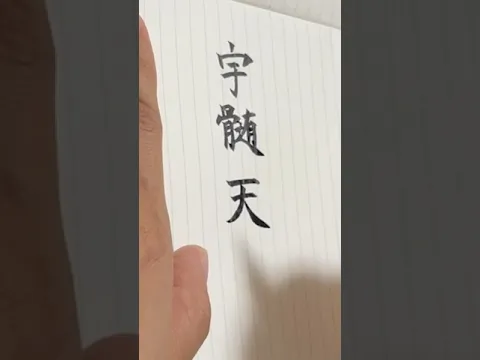 宇髄天